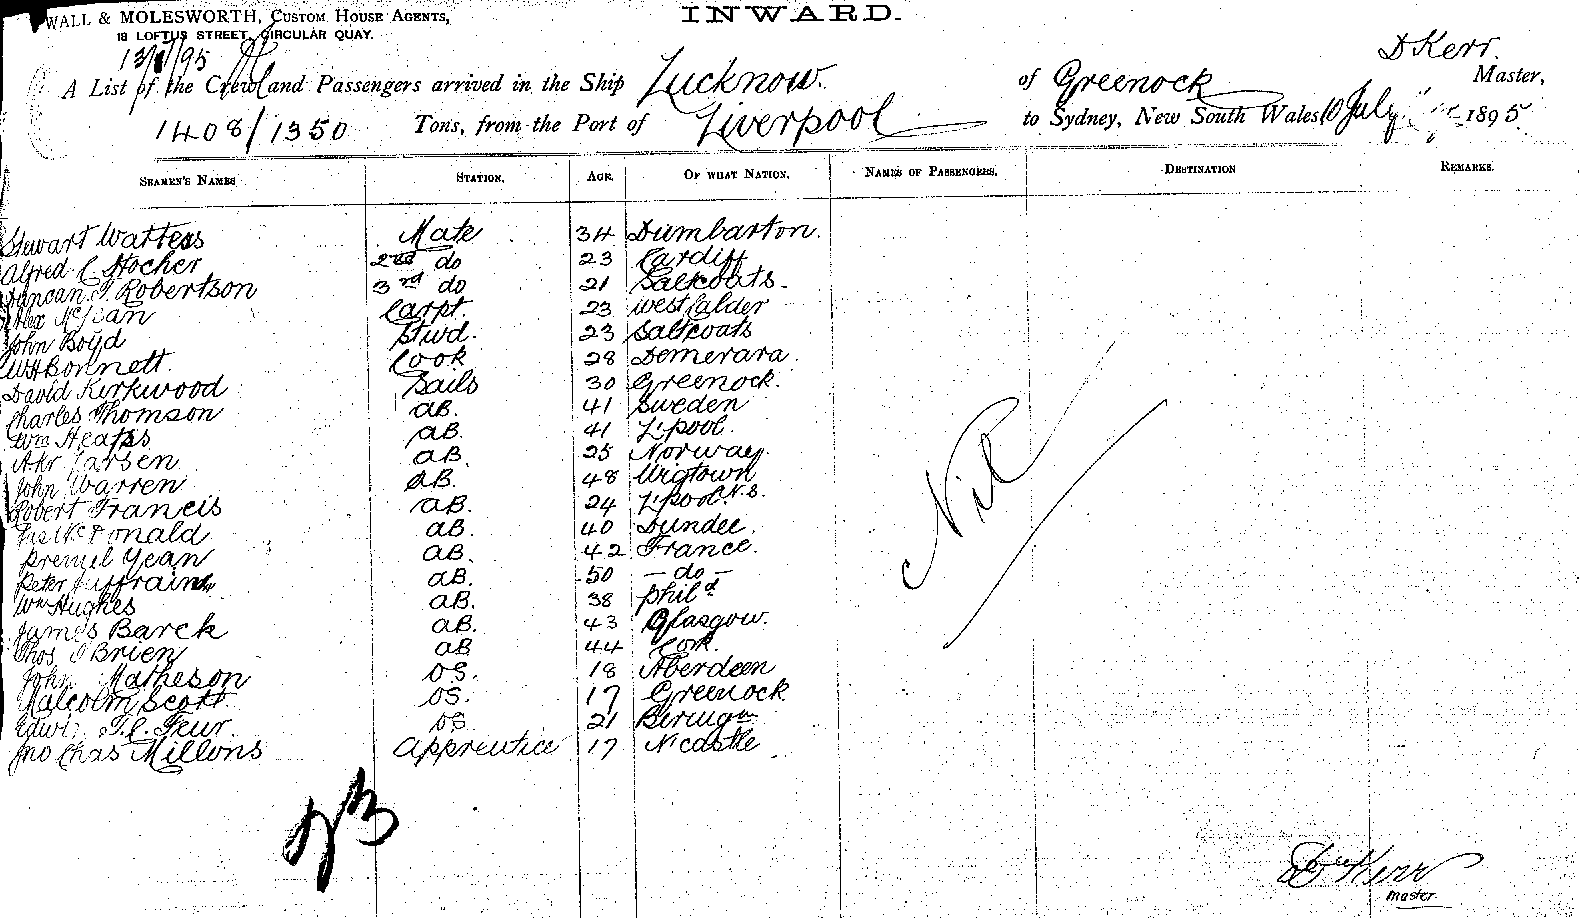 WALL & MOLESWORTH, CUSTOM HOUSE AGENTS,
INWARD.
18 LOFTUS STREET, CIRCULAR QUAY.
D Kerr.
A List of the Crew and Passengers arrived in the Ship Lucknow. of Greenock Master,
1408/1350 Tons, from the Port of Liverpool to Sydney, New South Wales 10 July 1895
SEAMEN'S NAMES STATION. AGE. OF WHAT NATION. NAMES OF PASSENGERS. DESTINATION REMARKS.
Stewart Mate 34 Dumbarton.
Alfred C Hocher 2nd do 23 Cardiff
Duncan Robertson 3rd do 21 Saltcoats.
Alex McJean Carpt. 23 West Calder
John Boyd Stwd. 23 Saltcoats
WH Bonnett. Cook 28 Demerara.
David Kirkwood Sails 30 Greenock.
Charles Thomson AB. 41 Sweden
Wm Heaps AB. 41 L'pool.
Larsen AB. 25 Norway.
John Warren AB. 48 Wigtown
Robert Francis AB. 24 L'pool N.S.
McDonald AB. 40 Dundee.
Yean AB. 42 France.
Peter AB. 50 - do -
Wm Hughes AB. 38 Phild
James Barck AB. 43 Glasgow.
Thos O'Brien AB 44 Cork.
John Matheson OS. 18 Aberdeen
Malcolm Scott. OS. 17 Greenock
Edwin OS 21
Jno Chas Millons Apprentice 17 N'castle
Nil
D Kerr
master